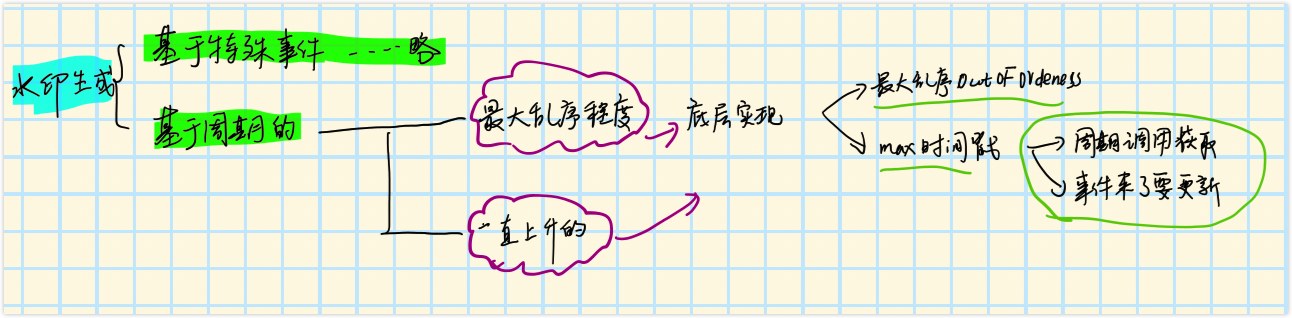 水印生成
基于特殊事件 ----略
基于周期的
最大乱序程度
一直上升的
底层实现
最大乱序OutOfOrdeness
max时间戳
周期调用获取
事件来了要更新